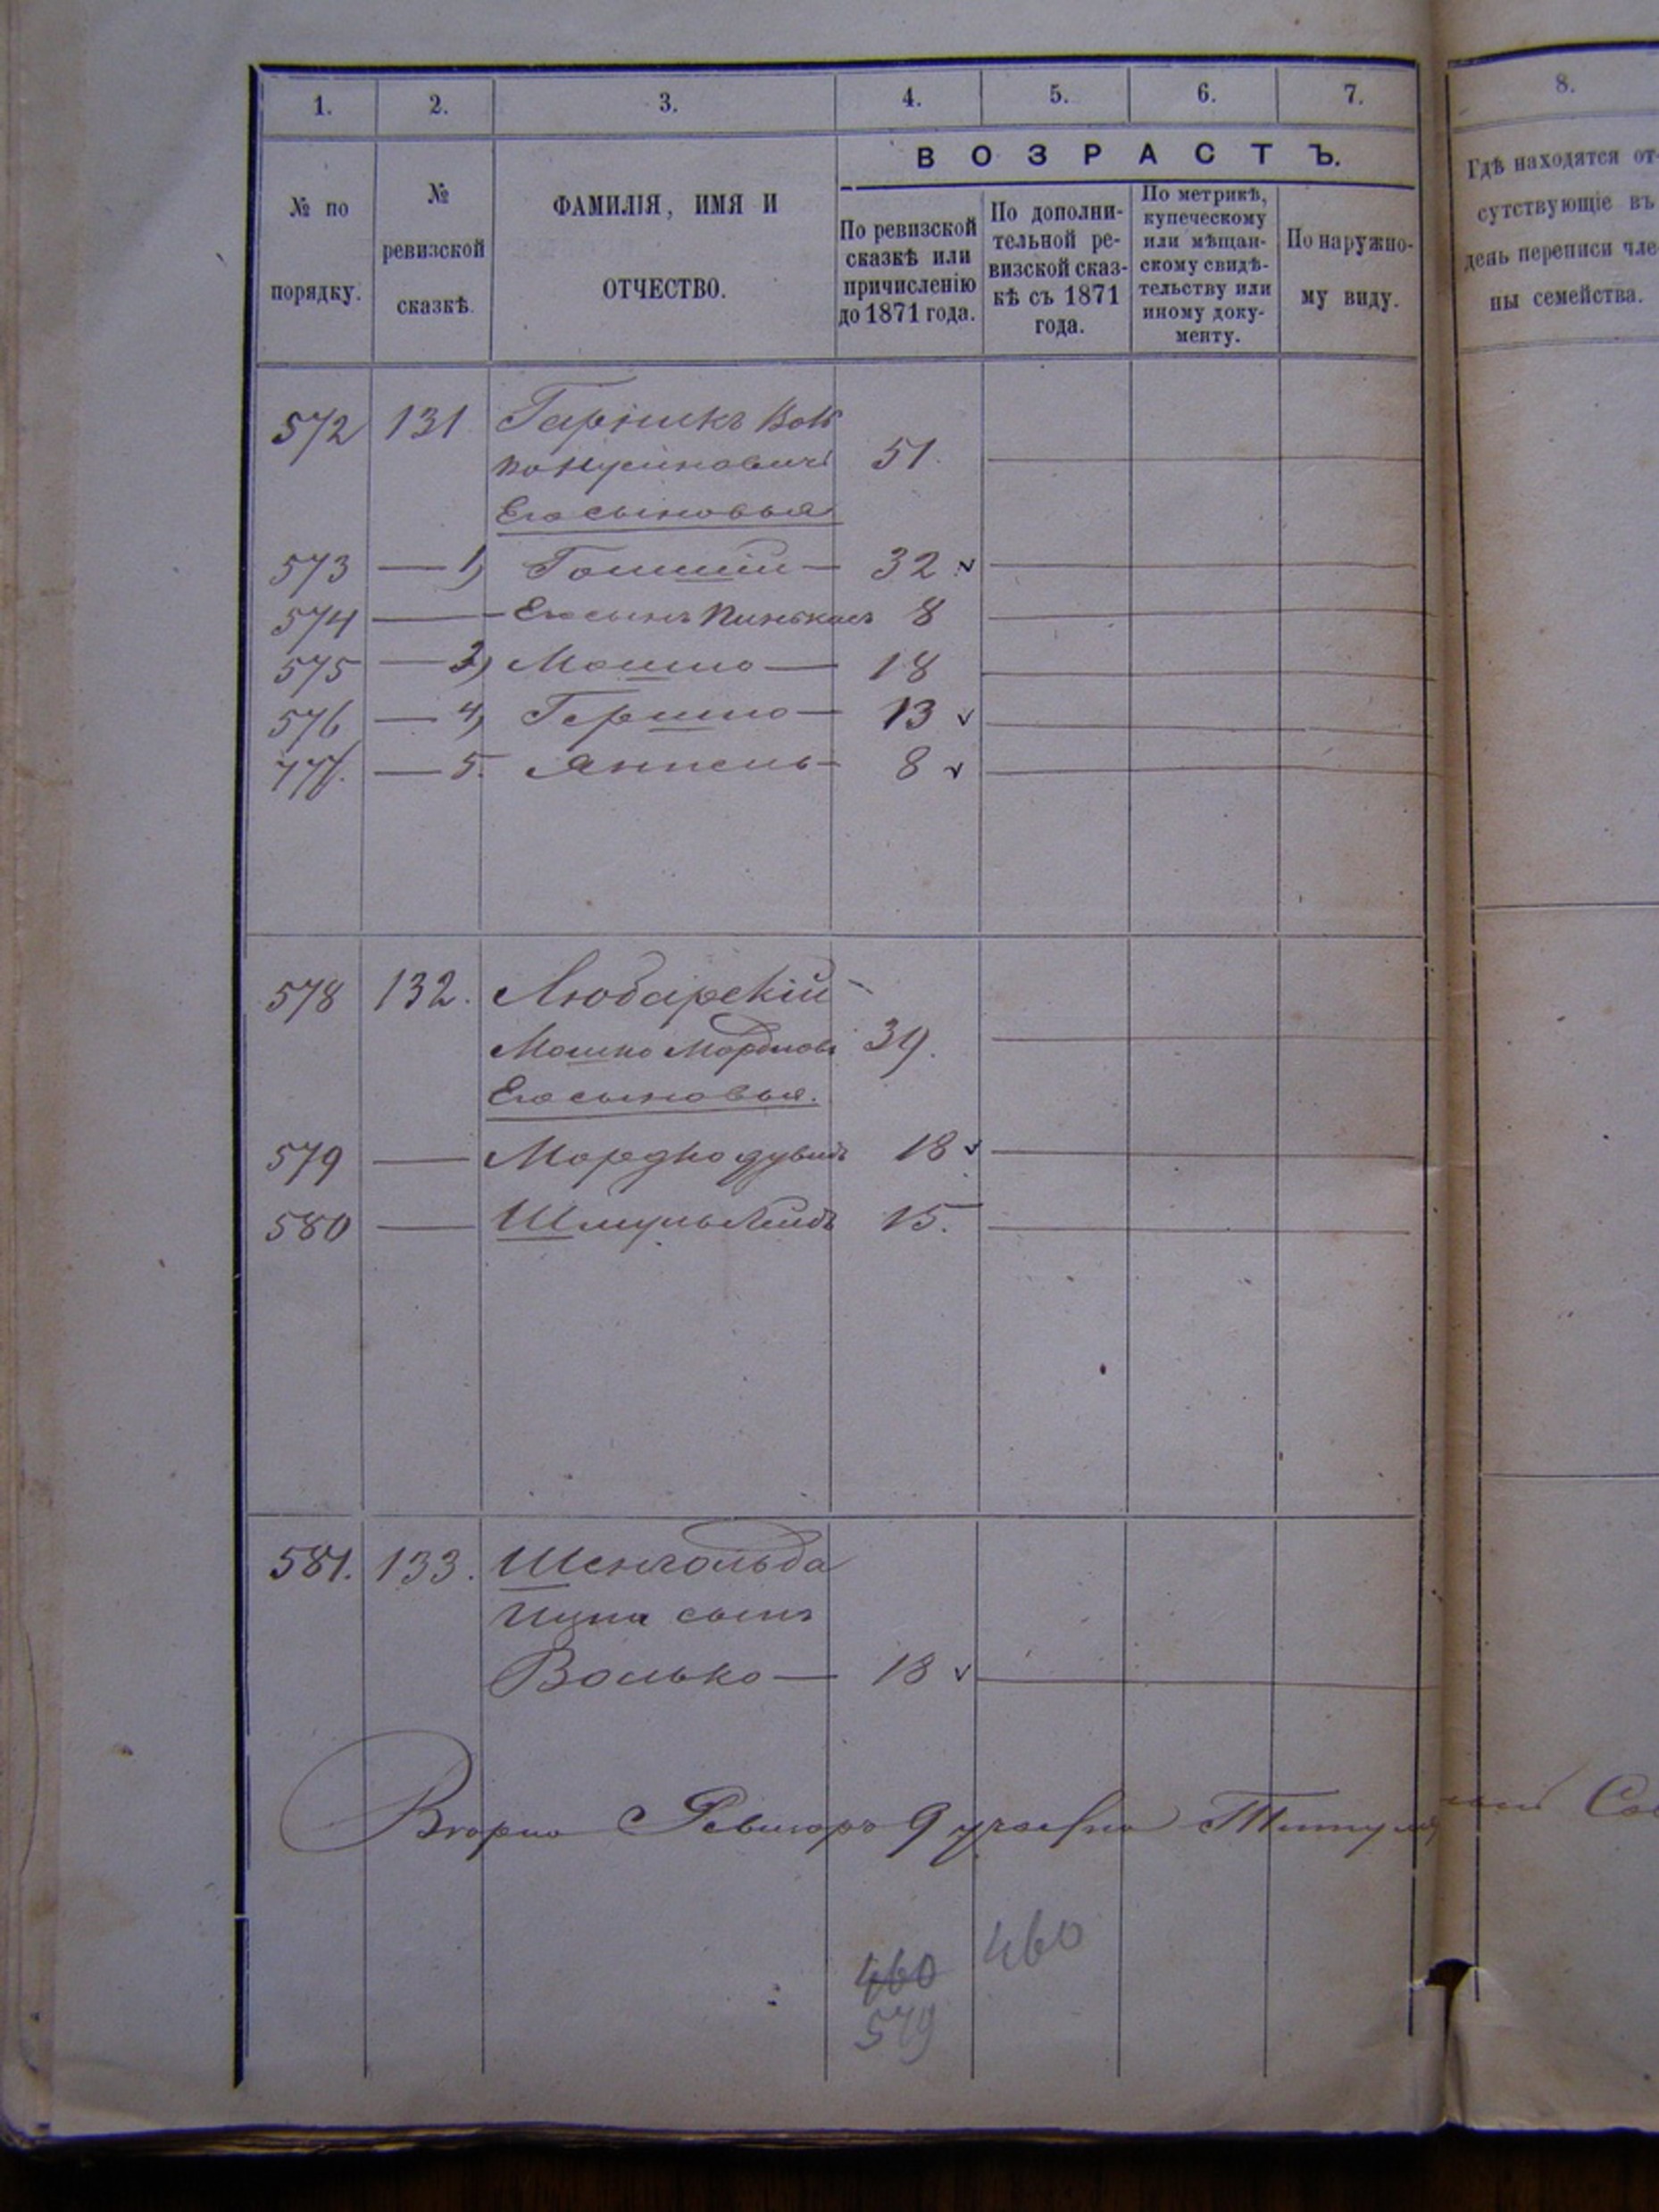 1. 2. 3. 4. 5. 6. 7.
8.
В О З Р А С Т Ъ.
№ по
порядку.
№
ревизской
сказкѣ.
ФАМИЛІЯ, ИМЯ И
ОТЧЕСТВО.
По ревизской
сказкѣ или
причисленію
до 1871 года.
По дополни-
тельной ре-
визской сказ-
кѣ съ 1871
года.
По метрикѣ,
купеческому
или мѣщан-
скому свидѣ-
тельству или
иному доку-
менту.
По наружно-
му виду.
Гдѣ находятся от-
сутствующіе въ
день переписи чле-
ны семейства.
572 131
51.
Его сыновья
573 — 1) 32
574 — Его сынъ Пинькасъ 8
575 — 3) Мошко — 18
576 — 4) Гершко — 13
577. — 5. Янкель — 8
578 132. Любарскій
Мошко Мордков 39.
Его сыновья.
579 — Мордко дувидъ 18
580 — Шмуль Лейбъ 15.
581. 133. Шенгольда
сынъ
Волько — 18
9 участка
460
460
579